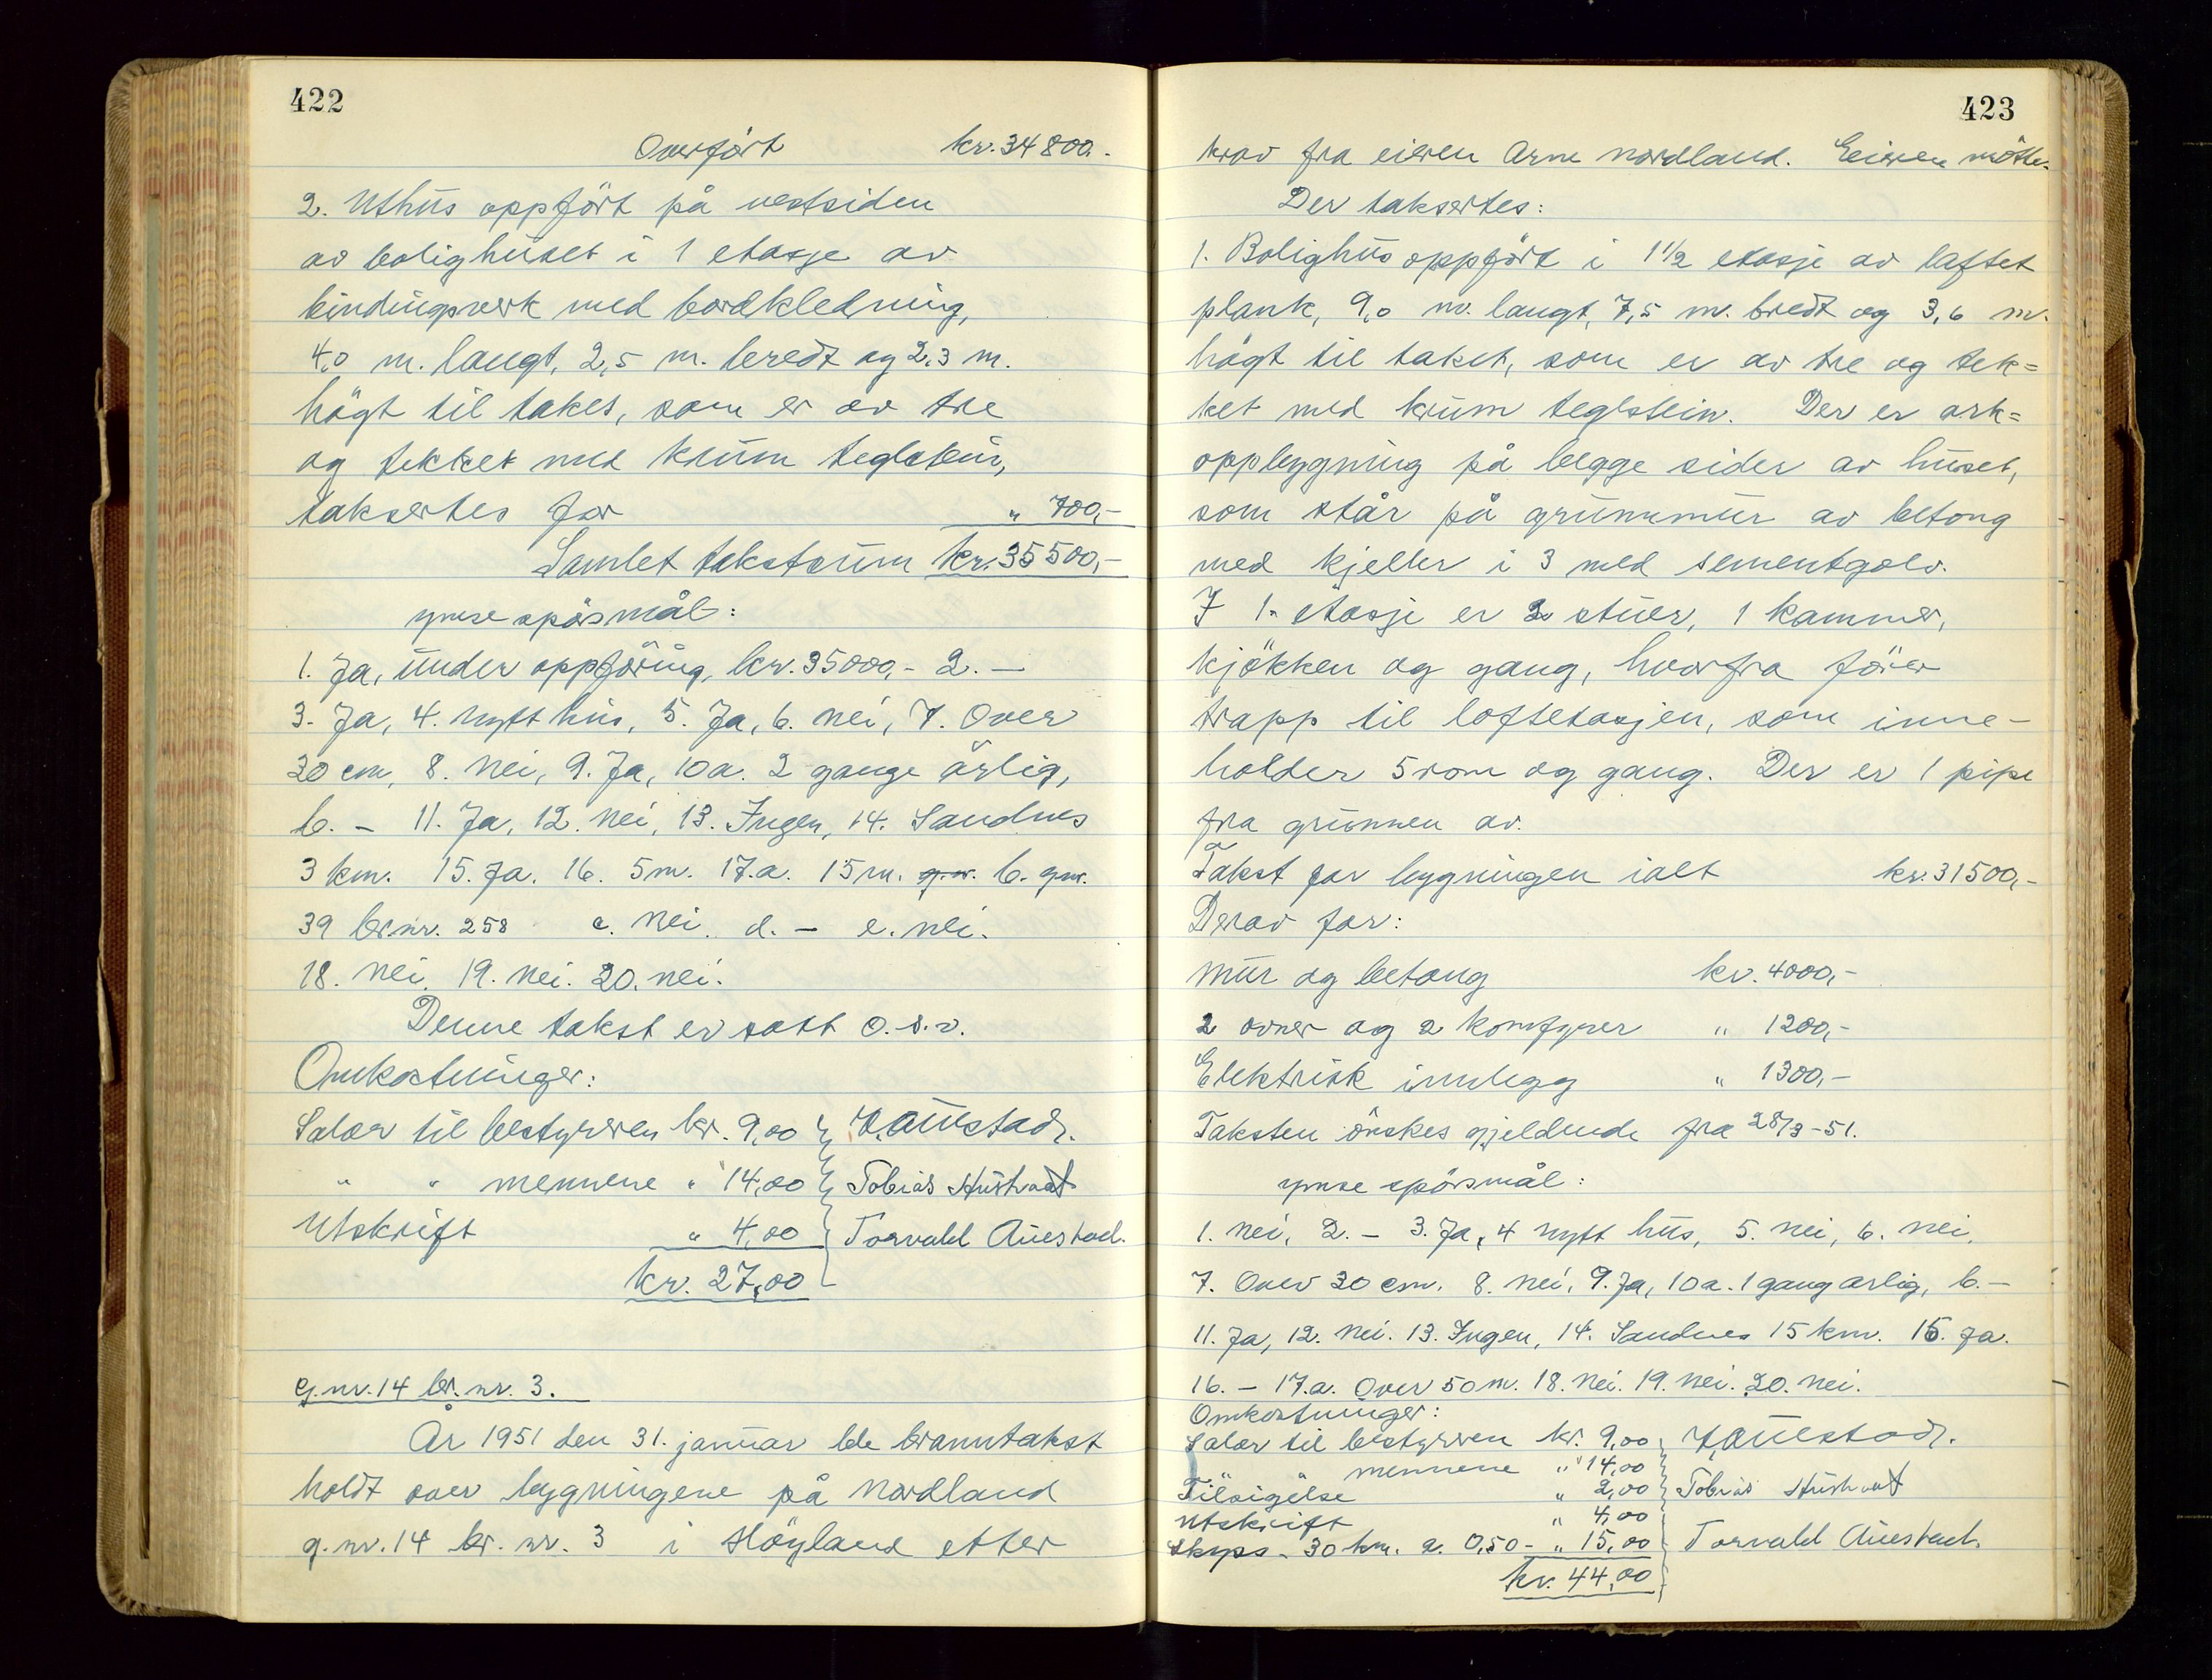 422
Overført kr. 34800.-
2. Uthus oppført på vestsiden
av bolighuset i 1 etasje av
bindingsverk med bordkledning,
4,0 m. langt, 2,5 m. bredt og 2,3 m.
högt til taket, som er av tre
og tekket med krum teglstein,
taksertes for " 700,-
Samlet takstsum kr. 35500,-
Ymse spörsmål:
1. Ja, under oppföring, kr. 35000,- 2. -
3. Ja, 4. Nytt hus, 5. Ja, 6. Nei, 7. Over
30 cm, 8. Nei, 9. Ja, 10a. 2 gange årlig,
b. - 11. Ja, 12. Nei, 13. Ingen, 14. Sandnes
3 km. 15. Ja. 16. 5 m. 17.a. 15 m. g.nr. b. gnr.
39 br.nr. 258 c. Nei. d. - e. nei.
18. Nei. 19. Nei. 20. Nei.
Denne takst er satt o.s.v.
Omkostninger:
Salær til bestyreren kr. 9,00 Auestad.
" " mennene " 14,00 Tobias Austvoll
Utskrift " 4,00 Torvald Auestad.
kr. 27,00
g.nr. 14 br. nr. 3.
År 1951 den 31. januar ble branntakst
holdt over bygningene på Nordland
g.nr. 14 br. nr. 3 i Höyland etter
423
krav fra eieren Arne Nordland. Eieren mötte.
Der taksertes:
1. Bolighus oppfört i 1 1/2 etasje av laftet
plank, 9,0 m. langt, 7,5 m. bredt og 3,6 m.
högt til taket, som er av tre og tek=
ket med krum teglstein. Der er ark=
oppbygning på begge sider av huset,
som står på grunnmur av betong
med kjeller i 3 med sementgolv.
I 1. etasje er 2 stuer, 1 kammer,
kjökken og gang, hvorfra förer
trapp til loftetasjen, som inne-
holder 5 rom og gang. Der er 1 pipe
fra grunnen av.
Takst for bygningen ialt kr. 31500,-
Derav for:
Mur og betong kr. 4000,-
2 ovner og 2 komfyrer " 1200,-
Elektrisk innlegg " 1300,-
Taksten önskes gjeldende fra 28/3-51.
Ymse spörsmål:
1. Nei, 2. - 3. Ja, 4 Nytt hus, 5. Nei, 6. Nei,
7. Over 30 cm. 8. Nei, 9. Ja, 10a. 1 gang årlig, b. -
11. Ja, 12. Nei. 13. Ingen, 14. Sandnes 15 km. 15. Ja.
16. - 17.a. Over 50 m. 18. Nei. 19. Nei. 20. Nei.
Omkostninger:
Salær til bestyreren kr. 9,00 Auestad.
mennene " 14,00
Tilsigelse " 2,00 Tobias Austvoll
Utskrift " 4,00
Skyss - 30 km. a. 0,50 - " 15,00 Torvald Auestad.
kr. 44,00